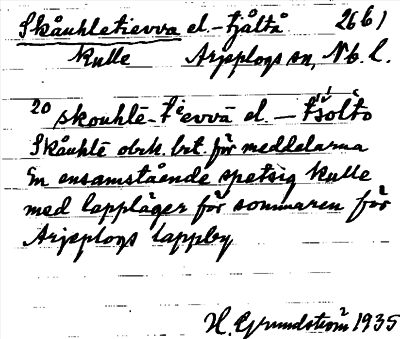 Skåuhletievva el. -tjåltå 26 b1
Kulle Arjeplogs sn, Nb. l.
20 skouhlē-tievvā el. - tšolto
Skåuhlē obek. bet. för meddelarna
En ensamstående spetsig kulle
med lappläger för sommaren för
Arjeplogs lappby
H. Grundström 1935